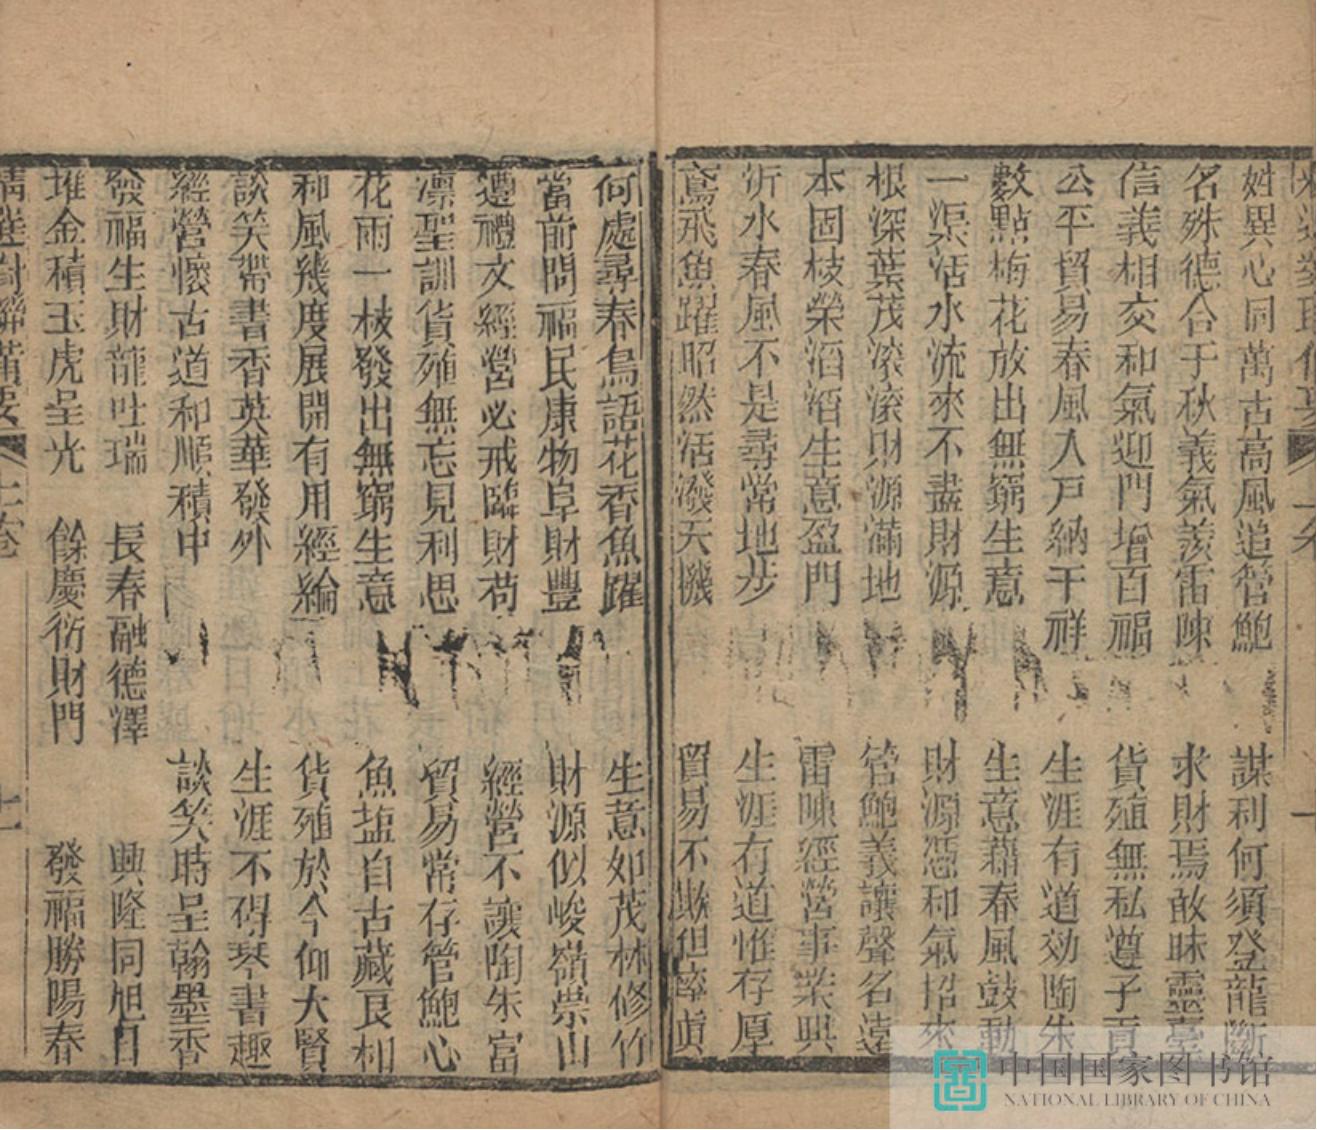 姓異心同萬古高風追管鮑 謀利何須登龍斷
名殊德合于秋義氣羨雷陳 求財焉敢昧靈臺
信義相交和氣迎門增百福 貨殖無私遵子貢
公平貿易春風入戸納千祥 生涯有道効陶朱
數點梅花放出無窮生意 生意藉春風鼓動
一渠活水流來不盡財源 財源憑和氣招來
根深葉茂滚滚財源滿地 管鮑義讓聲名遠
本固枝榮滔滔生意盈門 雷陳經營事業興
沂水春風不是尋常地步 生涯有道惟存厚
鳶飛魚躍昭然活潑天機 貿易不欺但率真
何處尋春鳥語花香魚躍 生意如茂林修竹
當前問福民康物阜財豐 財源似峻嶺崇山
遵禮文經營必戒臨財苟 經營不讓陶朱富
凛聖訓貨殖無忘見利思 貿易常存管鮑心
花雨一枝發出無窮生意 魚塩自古藏良相
和風幾度展開有用經綸 貨殖於今仰大賢
談笑帶書香英華發外 生涯不碍琴書趣
經營懷古道和順積中 談笑時呈翰墨香
發福生財龍吐瑞 長春融德澤 興隆同旭日
堆金積玉虎呈光 餘慶衍財門 發福勝陽春
精選對聯備要 上卷 十一
中国国家图书馆
NATIONAL LIBRARY OF CHINA